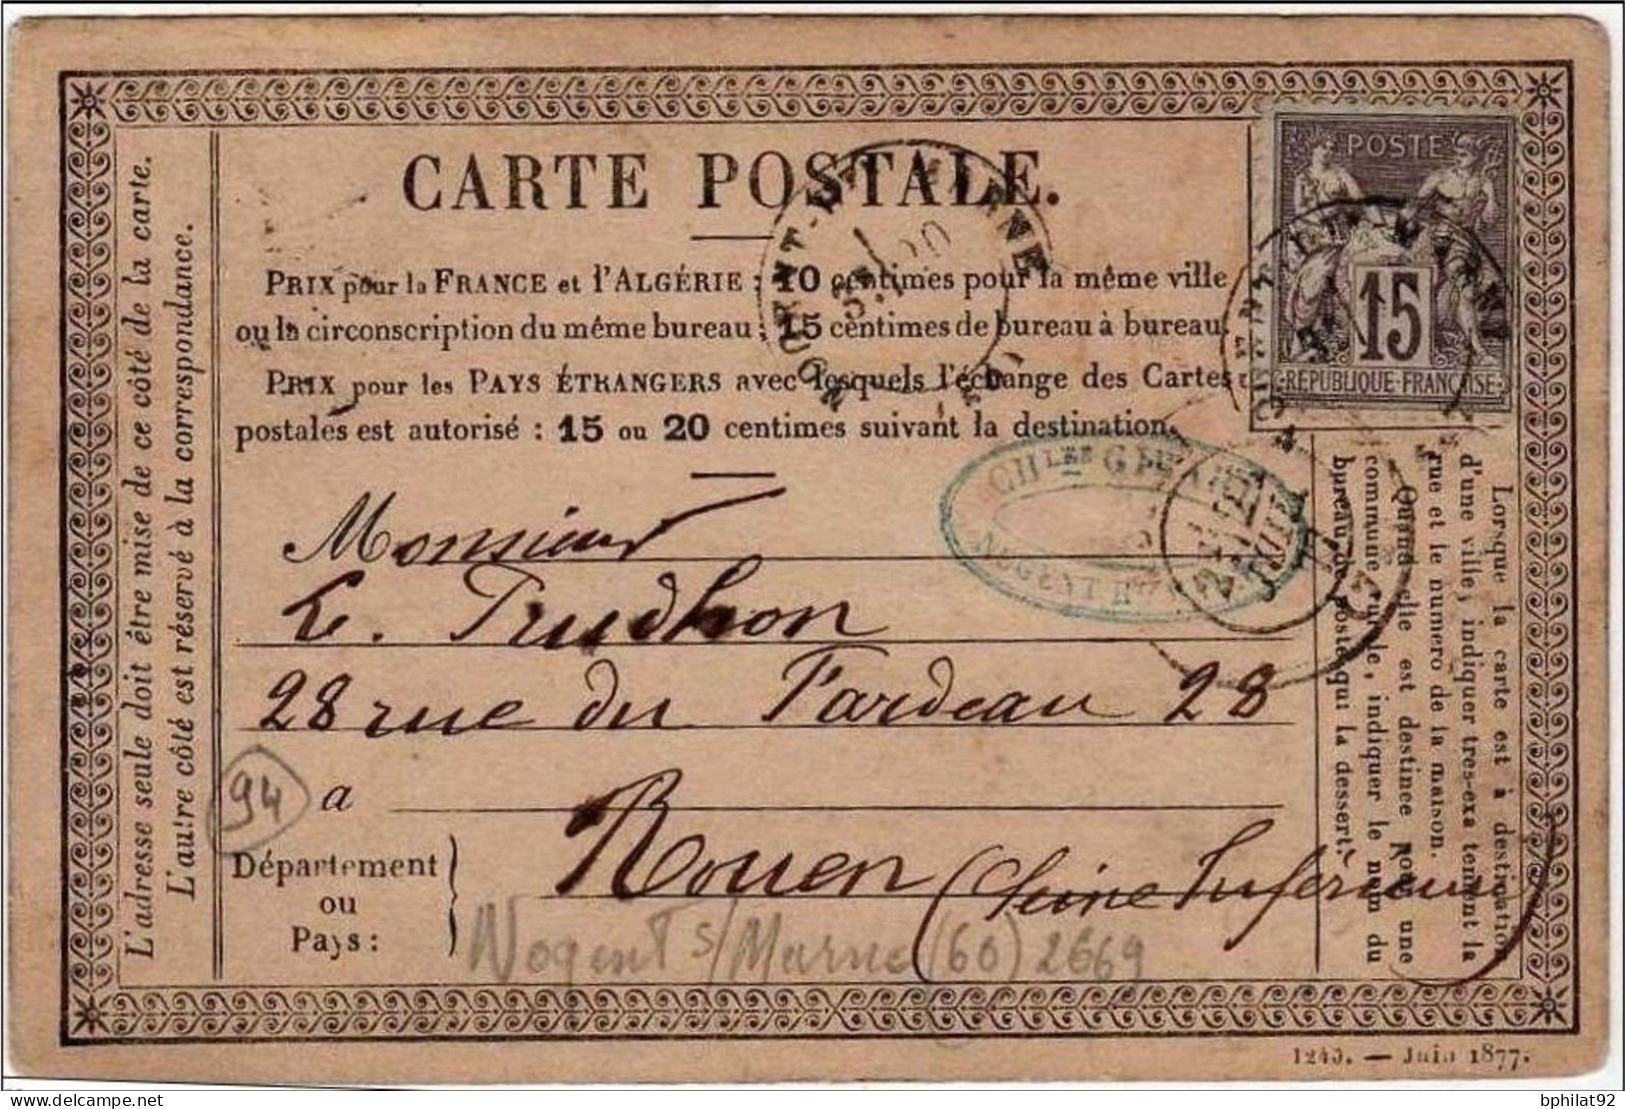 CARTE POSTALE.
PRIX pour la FRANCE et l'ALGÉRIE : 10 centimes pour la même ville
ou la circonscription du même bureau ; 15 centimes de bureau à bureau.
PRIX pour les PAYS ÉTRANGERS avec lesquels l'échange des Cartes
postales est autorisé : 15 ou 20 centimes suivant la destination.
POSTE
15
REPUBLIQUE FRANÇAISE
L'adresse seule doit être mise de ce côté de la carte.
L'autre côté est réservé à la correspondance.
Lorsque la carte est à destination
d'une ville, indiquer très-exactement la
rue et le numéro de la maison.
Quand elle est destinée pour une
commune rurale, indiquer le nom du
bureau de poste qui la dessert.
MARNE
CH LES
NOGENT
Monsieur
E. Prudhon
28 rue du Fardeau 28
94
a
Rouen (Seine Inférieure)
Département
ou
Pays :
Nogent s/Marne (60) 2669
1240. — Juin 1877.
delcampe.net
bphilat92